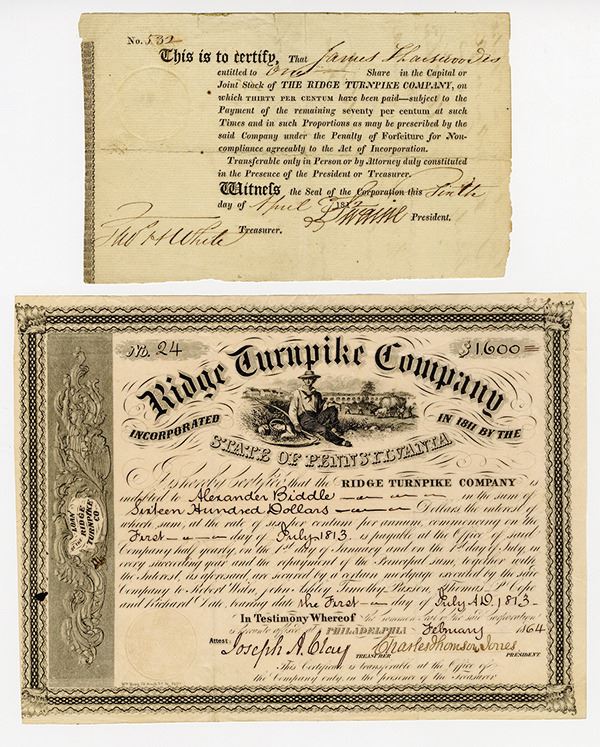 No. 532
This is to certify, That James
entitled to One Share in the Capital or
Joint Stock of THE RIDGE TURNPIKE COMPANY, on
which THIRTY PER CENTUM have been paid—subject to the
Payment of the remaining seventy per centum at such
Times and in such Proportions as may be prescribed by the
said Company under the Penalty of Forfeiture for Non-
compliance agreeably to the Act of Incorporation.
Transferable only in Person or by Attorney duly constituted
in the Presence of the President or Treasurer.
Witness the Seal of the Corporation this
day of April 181
President.
Treasurer.
Thos H White
No. 24
$1,600
Ridge Turnpike Company
INCORPORATED IN 1811 BY THE
STATE OF PENNSYLVANIA
LOAN
OF THE
RIDGE
TURNPIKE
CO
Is hereby Certified that the RIDGE TURNPIKE COMPANY is
indebted to Alexander Biddle in the sum
Sixteen Hundred Dollars Dollars the interest of
which sum, at the rate of six per centum per annum, commencing on the
First day of July 1813. is payable at the Office of said
Company half yearly, on the 1st day of January and on the 1st day of July, in
every succeeding year and the repayment of the Principal sum, together with
the Interest, as aforesaid, are secured by a certain mortgage executed by the said
Company to Robert John Ashley, Timothy Paxson, Thomas P. Cope
and Richard Dale, bearing date the First day of July A.D. 1813
In Testimony Whereof the common seal of the said corporation
is hereunto affixed at PHILADELPHIA February 1864
Attest: Joseph A. Clay
TREASURER
Charles Thomson Jones
PRESIDENT
This Certificate is transferable at the Office of
the Company only, in the presence of the Treasurer